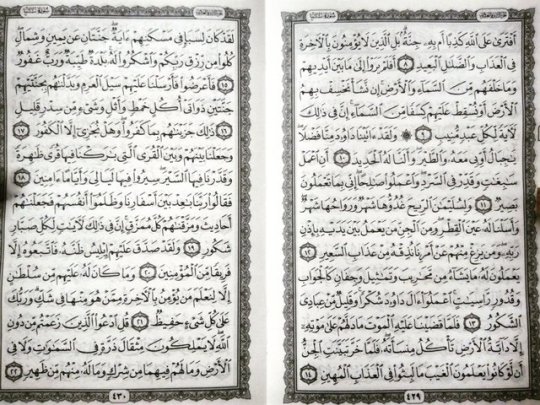 سُورَةُ سَبَإٍ
أَفْتَرَىٰ عَلَى ٱللَّهِ كَذِبًا أَم بِهِۦ جِنَّةٌۢ ۗ بَلِ ٱلَّذِينَ لَا يُؤْمِنُونَ بِٱلْـَٔاخِرَةِ
فِى ٱلْعَذَابِ وَٱلضَّلَٰلِ ٱلْبَعِيدِ ٨ أَفَلَمْ يَرَوْا۟ إِلَىٰ مَا بَيْنَ أَيْدِيهِمْ
وَمَا خَلْفَهُم مِّنَ ٱلسَّمَآءِ وَٱلْأَرْضِ ۚ إِن نَّشَأْ نَخْسِفْ بِهِمُ
ٱلْأَرْضَ أَوْ نُسْقِطْ عَلَيْهِمْ كِسَفًا مِّنَ ٱلسَّمَآءِ ۚ إِنَّ فِى ذَٰلِكَ
لَـَٔايَةً لِّكُلِّ عَبْدٍ مُّنِيبٍ ٩ ۞ وَلَقَدْ ءَاتَيْنَا دَاوُۥدَ مِنَّا فَضْلًا ۖ
يَٰجِبَالُ أَوِّبِى مَعَهُۥ وَٱلطَّيْرَ ۖ وَأَلَنَّا لَهُ ٱلْحَدِيدَ ١٠ أَنِ ٱعْمَلْ
سَٰبِغَٰتٍ وَقَدِّرْ فِى ٱلسَّرْدِ ۖ وَٱعْمَلُوا۟ صَٰلِحًا ۖ إِنِّى بِمَا تَعْمَلُونَ
بَصِيرٌ ١١ وَلِسُلَيْمَٰنَ ٱلرِّيحَ غُدُوُّهَا شَهْرٌ وَرَوَاحُهَا شَهْرٌ ۖ
وَأَسَلْنَا لَهُۥ عَيْنَ ٱلْقِطْرِ ۖ وَمِنَ ٱلْجِنِّ مَن يَعْمَلُ بَيْنَ يَدَيْهِ بِإِذْنِ
رَبِّهِۦ ۖ وَمَن يَزِغْ مِنْهُمْ عَنْ أَمْرِنَا نُذِقْهُ مِنْ عَذَابِ ٱلسَّعِيرِ ١٢
يَعْمَلُونَ لَهُۥ مَا يَشَآءُ مِن مَّحَٰرِيبَ وَتَمَٰثِيلَ وَجِفَانٍ كَٱلْجَوَابِ
وَقُدُورٍ رَّاسِيَٰتٍ ۚ ٱعْمَلُوٓا۟ ءَالَ دَاوُۥدَ شُكْرًا ۚ وَقَلِيلٌ مِّنْ عِبَادِىَ
ٱلشَّكُورُ ١٣ فَلَمَّا قَضَيْنَا عَلَيْهِ ٱلْمَوْتَ مَا دَلَّهُمْ عَلَىٰ مَوْتِهِۦٓ
إِلَّا دَآبَّةُ ٱلْأَرْضِ تَأْكُلُ مِنسَأَتَهُۥ ۖ فَلَمَّا خَرَّ تَبَيَّنَتِ ٱلْجِنُّ
أَن لَّوْ كَانُوا۟ يَعْلَمُونَ ٱلْغَيْبَ مَا لَبِثُوا۟ فِى ٱلْعَذَابِ ٱلْمُهِينِ ١٤
٤٢٩
سُورَةُ سَبَإٍ
لَقَدْ كَانَ لِسَبَإٍ فِى مَسْكَنِهِمْ ءَايَةٌ ۖ جَنَّتَانِ عَن يَمِينٍ وَشِمَالٍ ۖ
كُلُوا۟ مِن رِّزْقِ رَبِّكُمْ وَٱشْكُرُوا۟ لَهُۥ ۚ بَلْدَةٌ طَيِّبَةٌ وَرَبٌّ غَفُورٌ
١٥ فَأَعْرَضُوا۟ فَأَرْسَلْنَا عَلَيْهِمْ سَيْلَ ٱلْعَرِمِ وَبَدَّلْنَٰهُم بِجَنَّتَيْهِمْ
جَنَّتَيْنِ ذَوَاتَىْ أُكُلٍ خَمْطٍ وَأَثْلٍ وَشَىْءٍ مِّن سِدْرٍ قَلِيلٍ
١٦ ذَٰلِكَ جَزَيْنَٰهُم بِمَا كَفَرُوا۟ ۖ وَهَلْ نُجَٰزِىٓ إِلَّا ٱلْكَفُورَ ١٧
وَجَعَلْنَا بَيْنَهُمْ وَبَيْنَ ٱلْقُرَى ٱلَّتِى بَٰرَكْنَا فِيهَا قُرًى ظَٰهِرَةً
وَقَدَّرْنَا فِيهَا ٱلسَّيْرَ ۖ سِيرُوا۟ فِيهَا لَيَالِىَ وَأَيَّامًا ءَامِنِينَ ١٨
فَقَالُوا۟ رَبَّنَا بَٰعِدْ بَيْنَ أَسْفَارِنَا وَظَلَمُوٓا۟ أَنفُسَهُمْ فَجَعَلْنَٰهُمْ
أَحَادِيثَ وَمَزَّقْنَٰهُمْ كُلَّ مُمَزَّقٍ ۚ إِنَّ فِى ذَٰلِكَ لَـَٔايَٰتٍ لِّكُلِّ صَبَّارٍ
شَكُورٍ ١٩ وَلَقَدْ صَدَّقَ عَلَيْهِمْ إِبْلِيسُ ظَنَّهُۥ فَٱتَّبَعُوهُ إِلَّا
فَرِيقًا مِّنَ ٱلْمُؤْمِنِينَ ٢٠ وَمَا كَانَ لَهُۥ عَلَيْهِم مِّن سُلْطَٰنٍ
إِلَّا لِنَعْلَمَ مَن يُؤْمِنُ بِٱلْـَٔاخِرَةِ مِمَّنْ هُوَ مِنْهَا فِى شَكٍّ ۗ وَرَبُّكَ
عَلَىٰ كُلِّ شَىْءٍ حَفِيظٌ ٢١ قُلِ ٱدْعُوا۟ ٱلَّذِينَ زَعَمْتُم مِّن دُونِ
ٱللَّهِ ۖ لَا يَمْلِكُونَ مِثْقَالَ ذَرَّةٍ فِى ٱلسَّمَٰوَٰتِ وَلَا فِى
ٱلْأَرْضِ وَمَا لَهُمْ فِيهِمَا مِن شِرْكٍ وَمَا لَهُۥ مِنْهُم مِّن ظَهِيرٍ ٢٢
٤٣٠